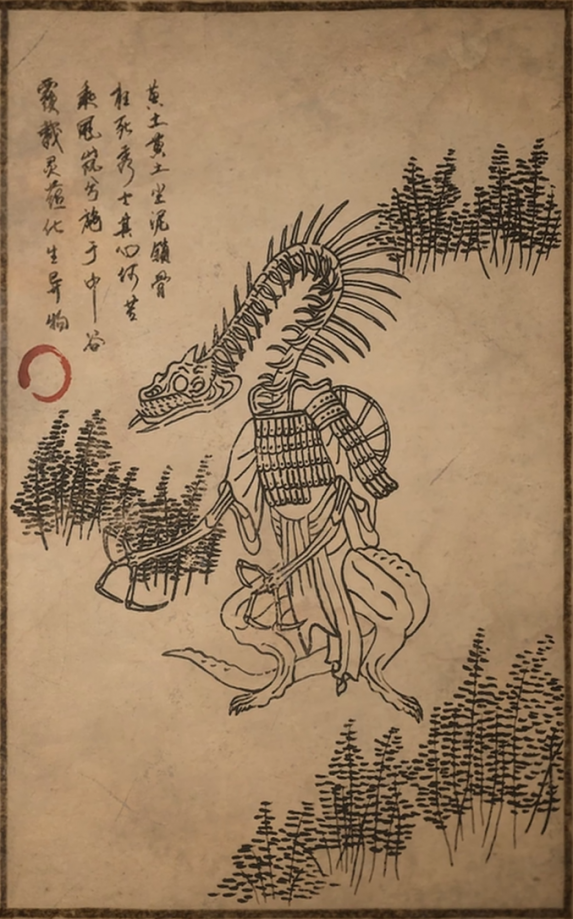 黄土黄土尘泥锁骨
枉死秀士其心何苦
乘风岚兮施于中谷
覆载灵蕴化生异物